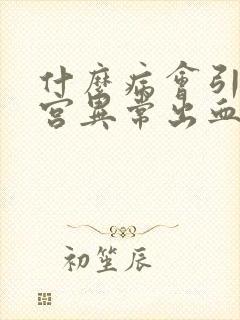 什麼病會引
宮異常出血
初笙辰